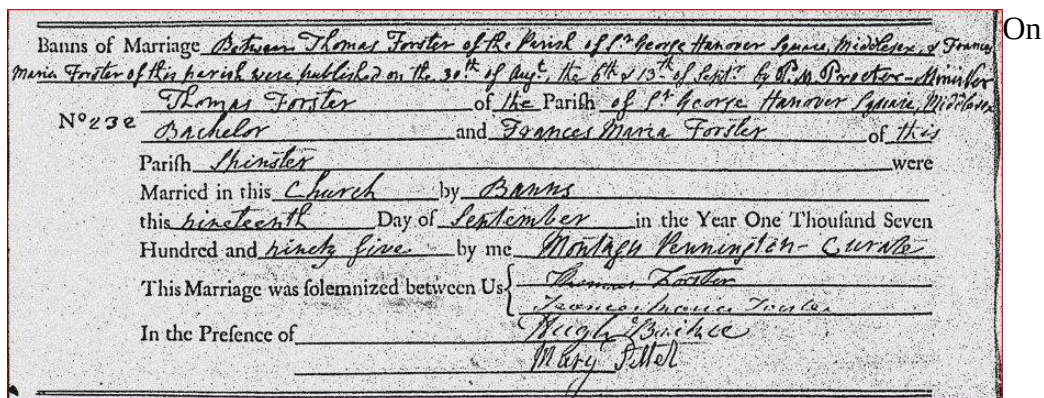 On
Banns of Marriage Between Thomas Forster of the Parish of St George Hanover Square, Middlesex, & Frances
Maria Forster of this parish were published on the 30th of Augt, the 6th & 13th of Septr by P. M. Procter - Minister
Thomas Forster of the Parish of St George Hanover Square, Middlesex
No 232
Bachelor and Frances Maria Forster of this
Parish Spinster were
Married in this Church by Banns
this nineteenth Day of September in the Year One Thousand Seven
Hundred and ninety five by me Montagu Pennington - Curate
This Marriage was solemnized between Us { Thomas Forster
Frances Maria Forster
In the Presence of Hugh
Mary